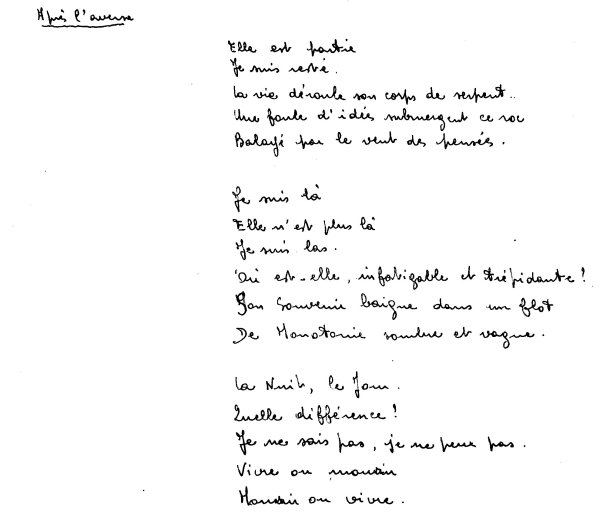 Après l'averse
Elle est partie
Je suis resté.
La vie déroule son corps de serpent..
Une foule d'idées submergent ce roc
Balayé par le vent des pensées.
Je suis là
Elle n'est plus là
Je suis las.
Où est-elle, infatigable et trépidante !
Son Souvenir baigne dans un flot
De Monotonie sombre et vague.
La Nuit, le Jour.
Quelle différence !
Je ne sais pas, je ne peux pas.
Vivre ou mourir
Mourir ou vivre.